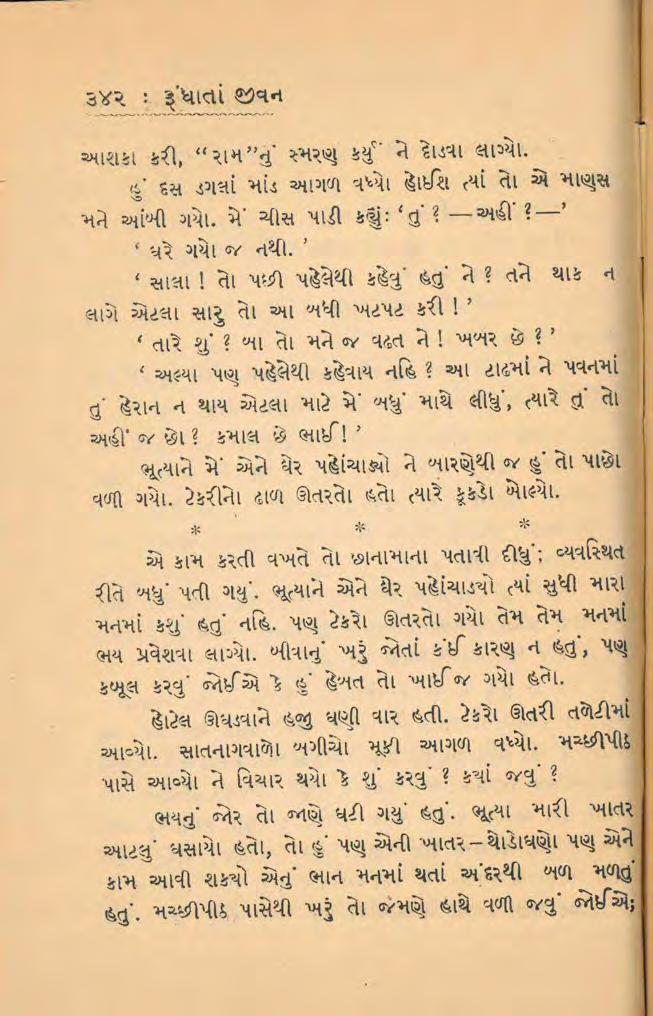 ૩૪૨ : રૂંધાતાં જીવન
આશકા કરી, “રામ”નું સ્મરણ કર્યું ને દોડવા લાગ્યો.
હું દસ ડગલાં માંડ આગળ વધ્યો હોઈશ ત્યાં તો એ માણસ
મને આંબી ગયો. મેં ચીસ પાડી કહ્યું: ‘તું ? — અહીં ? —’
‘ ઘરે ગયો જ નથી. ’
‘ સાલા ! તો પછી પહેલેથી કહેવું હતું ને ? તને થાક ન
લાગે એટલા સારુ તો આ બધી ખટપટ કરી ! ’
‘ તારે શું ? બા તો મને જ વઢત ને ! ખબર છે ? ’
‘ અલ્યા પણ પહેલેથી કહેવાય નહિ ? આ ટાઢમાં ને પવનમાં
તું હેરાન ન થાય એટલા માટે મેં બધું માથે લીધું, ત્યારે તું તો
અહીં જ છો ? કમાલ છે ભાઈ ! ’
ભૂત્યાને મેં એને ઘેર પહોંચાડ્યો ને બારણેથી જ હું તો પાછો
વળી ગયો. ટેકરીનો ઢાળ ઊતરતો હતો ત્યારે કૂકડો બોલ્યો.
* * *
એ કામ કરતી વખતે તો છાનામાના પતાવી દીધું; વ્યવસ્થિત
રીતે બધું પતી ગયું. ભૂત્યાને એને ઘેર પહોંચાડ્યો ત્યાં સુધી મારા
મનમાં કશું હતું નહિ. પણ ટેકરો ઊતરતો ગયો તેમ તેમ મનમાં
ભય પ્રવેશવા લાગ્યો. બીવાનું ખરું જોતાં કંઈ કારણ ન હતું, પણ
કબૂલ કરવું જોઈએ કે હું હેબત તો ખાઈ જ ગયો હતો.
હોટેલ ઊઘડવાને હજી ઘણી વાર હતી. ટેકરો ઊતરી તળેટીમાં
આવ્યો. સાતનાગવાળો બગીચો મૂકી આગળ વધ્યો. મચ્છીપીઠ
પાસે આવ્યો ને વિચાર થયો કે શું કરવું ? ક્યાં જવું ?
ભયનું જોર તો જાણે ઘટી ગયું હતું. ભૂત્યા મારી ખાતર
આટલું ઘસાયો હતો, તો હું પણ એની ખાતર – થોડોઘણો પણ એને
કામ આવી શક્યો એનું ભાન મનમાં થતાં અંદરથી બળ મળતું
હતું. મચ્છીપીઠ પાસેથી ખરું તો જમણે હાથે વળી જવું જોઈએ;